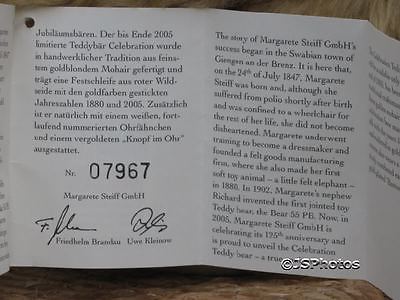 Jubiläumsbären. Der bis Ende 2005
limitierte Teddybär Celebration wurde
in handwerklicher Tradition aus fein-
stem goldblondem Mohair gefertigt und
trägt eine Festschleife aus roter Wild-
seide mit den goldfarben gestickten
Jahreszahlen 1880 und 2005. Zusätzlich
ist er natürlich mit einem weißen, fort-
laufend nummerierten Ohrfähnchen
und einem vergoldeten „Knopf im Ohr“
ausgestattet.
Nr. 07967
Margarete Steiff GmbH
Friedhelm Brandau Uwe Kleinow
The story of Margarete Steiff GmbH's
success began in the Swabian town of
Giengen an der Brenz. It is here that,
on the 24th of July 1847, Margarete
Steiff was born and, although she
suffered from polio shortly after birth
and was confined to a wheelchair for
the rest of her life, she did not become
disheartened. Margarete underwent
training to become a dressmaker and
founded a felt goods manufacturing
firm, where she also made her first
soft toy animal – a little felt elephant –
in 1880. In 1902, Margarete's nephew
Richard invented the first jointed toy
Teddy bear, the Bear 55 PB. Now, in
2005, Margarete Steiff GmbH is
celebrating its 125th anniversary and
is proud to unveil the Celebration
Teddy bear – a true
©JSPhotos